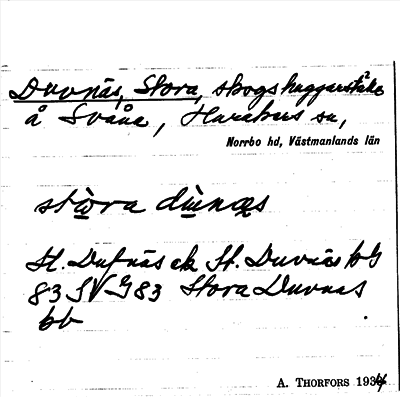 Duvnäs, Stora, skogshuggarställe
å Svåna, Harakers sn,
Norrbo hd, Västmanlands län
stora duvnäs
St. Dufnäs ek St. Duvnäs bG
83 SV G83 Stora Duvnäs
bb
A. THORFORS 1934